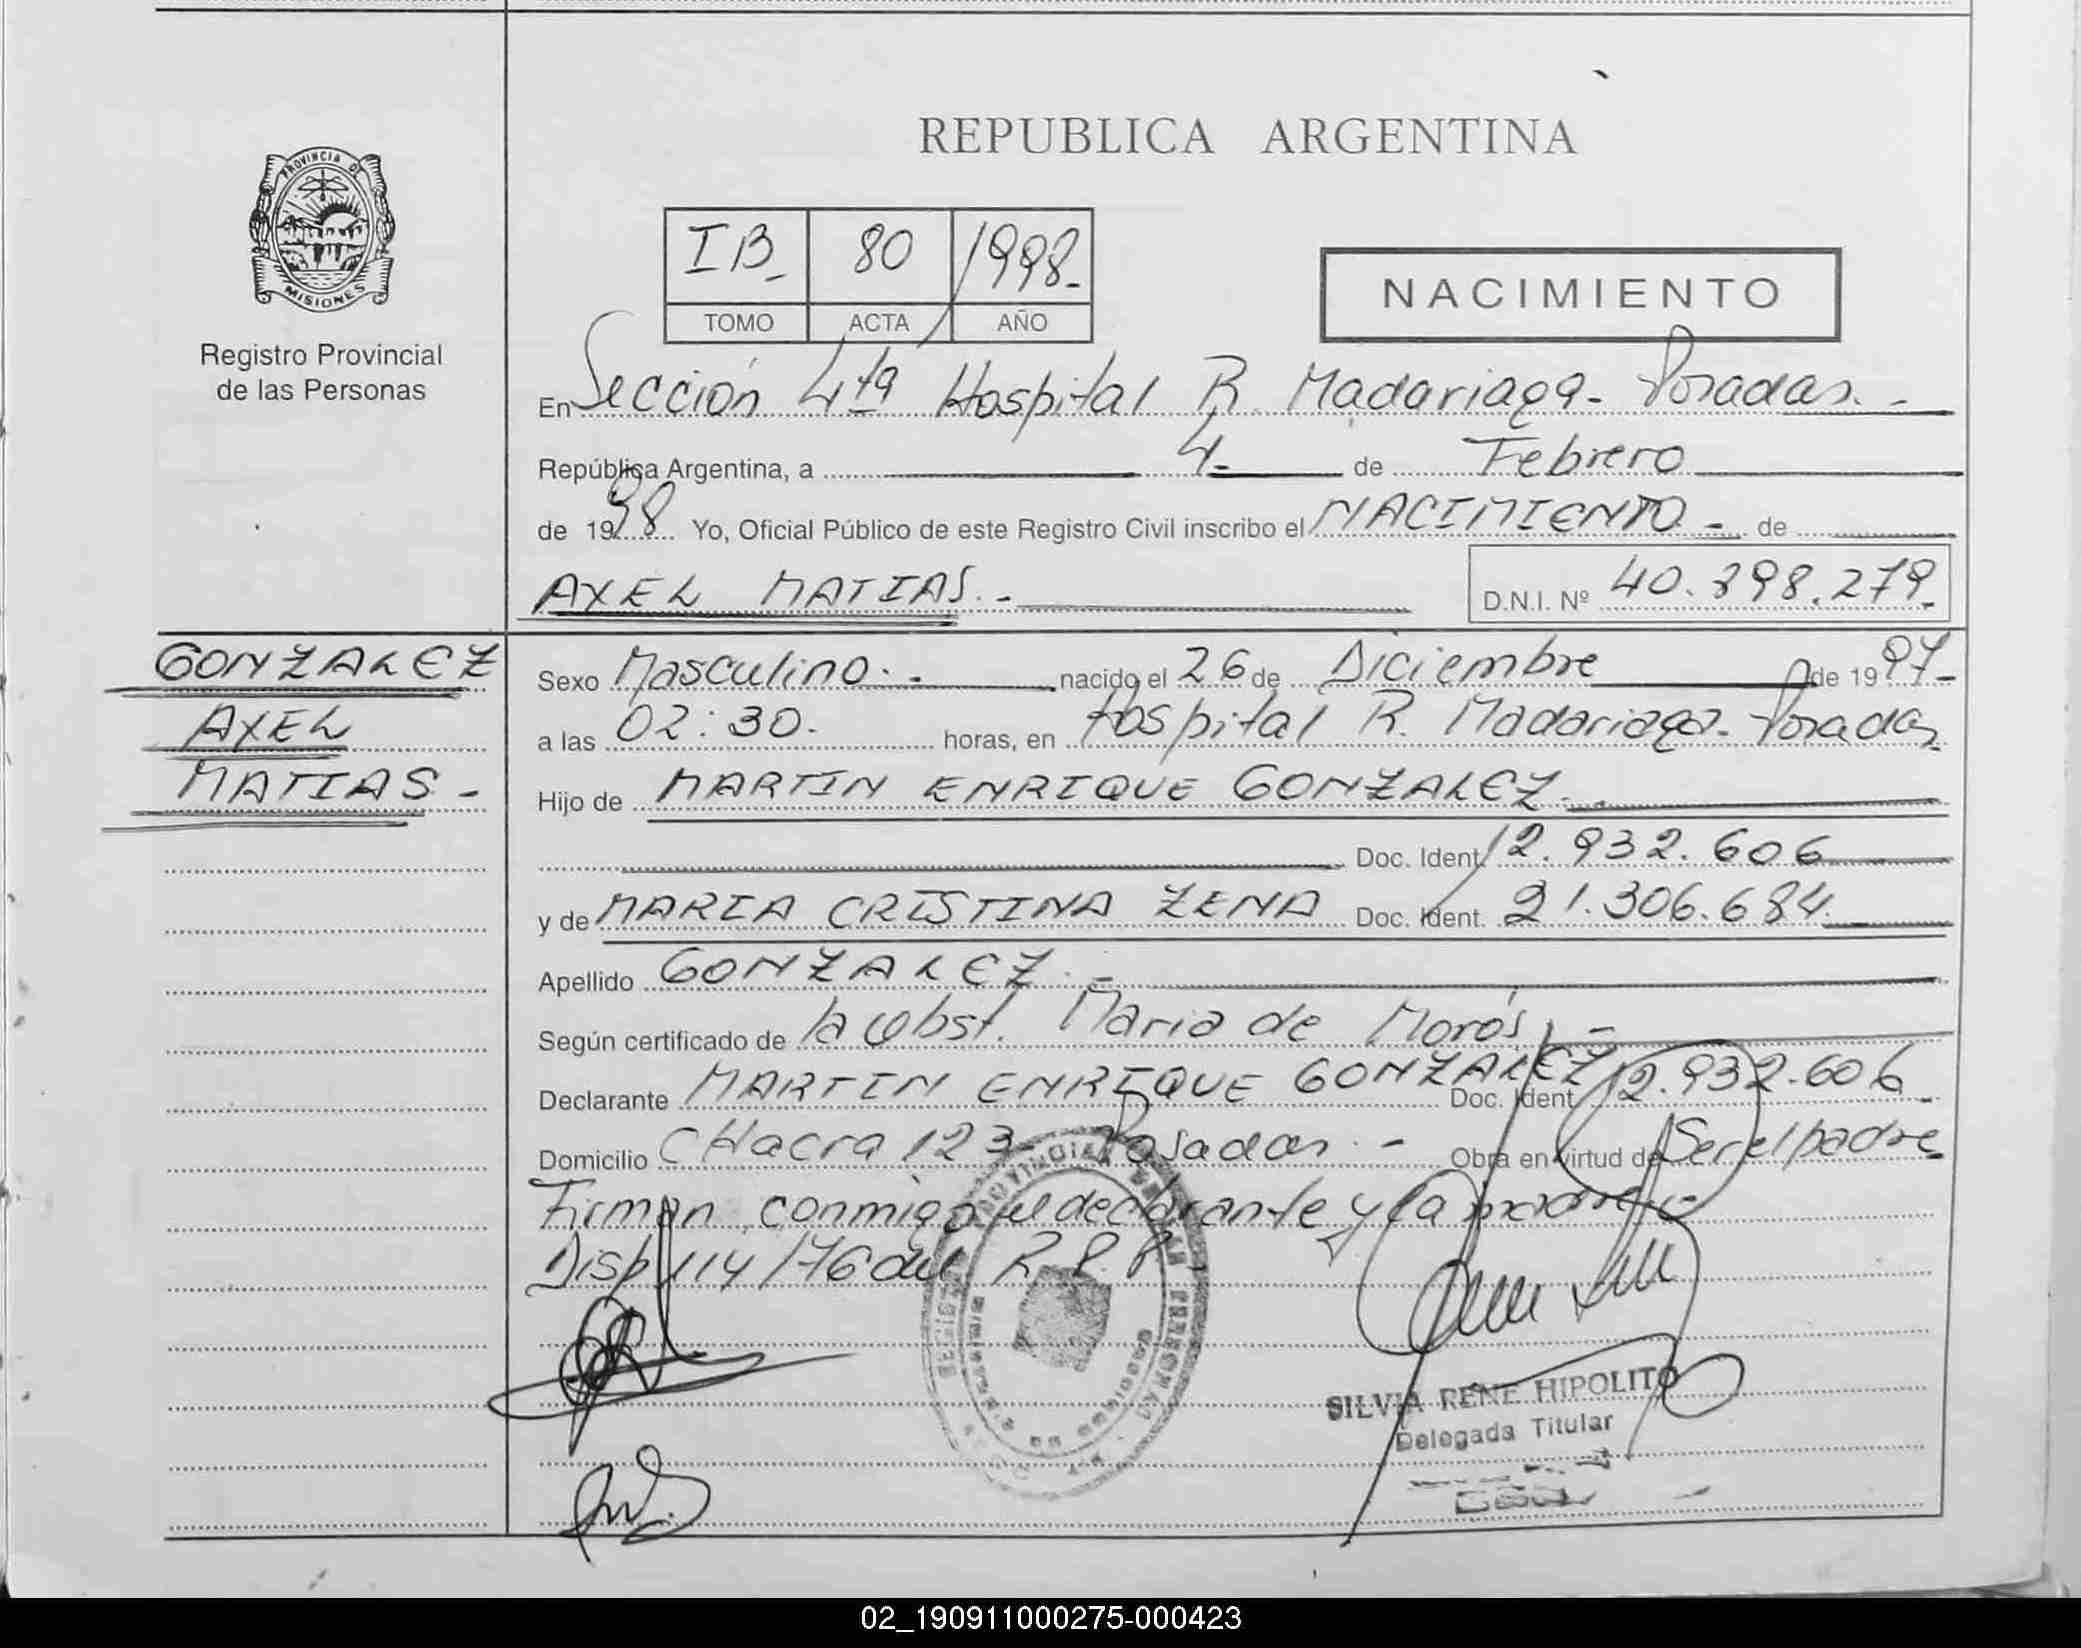 REPUBLICA ARGENTINA
PROVINCIA DE
MISIONES
Registro Provincial
de las Personas
IB- 80 1998-
TOMO ACTA AÑO
NACIMIENTO
En Sección 4ta Hospital R. Madariaga - Posadas. -
República Argentina, a 4- de Febrero
de 1998 Yo, Oficial Público de este Registro Civil inscribo el NACIMIENTO - de
AXEL MATIAS. - D.N.I. Nº 40.898.279-
GONZALEZ
AXEL
MATIAS -
Sexo Masculino. - nacido el 26 de Diciembre de 1997-
a las 02:30. horas, en Hospital R. Madariaga - Posadas
Hijo de MARTIN ENRIQUE GONZALEZ. -
Doc. Ident. 12.932.606
y de MARIA CRISTINA ZENA Doc. Ident. 21.306.684.
Apellido GONZALEZ. -
Según certificado de la Obst. Maria de Morós, -
Declarante MARTIN ENRIQUE GONZALEZ Doc. Ident. 12.932.606-
Domicilio CHacra 123 - Posadas. - Obra en virtud de Ser el padre
Firman conmigo el declarante y la madre.-
Disp 114/76 del R.P.P.
SILVIA RENE HIPOLITO
Delegada Titular
02_190911000275-000423